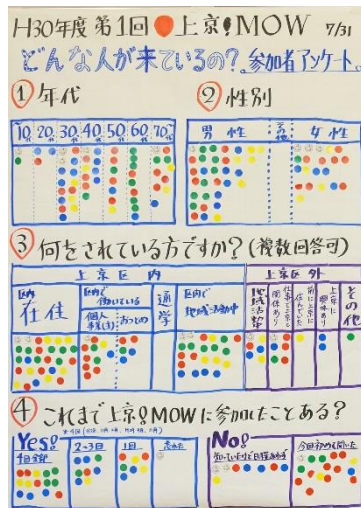 H30年度 第1回 上京!MOW 7/31
どんな人が来ているの? 参加者アンケート。
① 年代
10代 20代 30代 40代 50代 60代 70代
② 性別
男性 その他 女性
③ 何をされている方ですか?(複数回答可)
上京区内 上京区外
区内在住
区内で働いている
個人事業(主) おつとめ
通学
区内で地域活動中
地域活動
その他
④ これまで上京!MOWに参加したことある?
Yes! No!
4回全部 2〜3回 1回
今回初めて聞いた